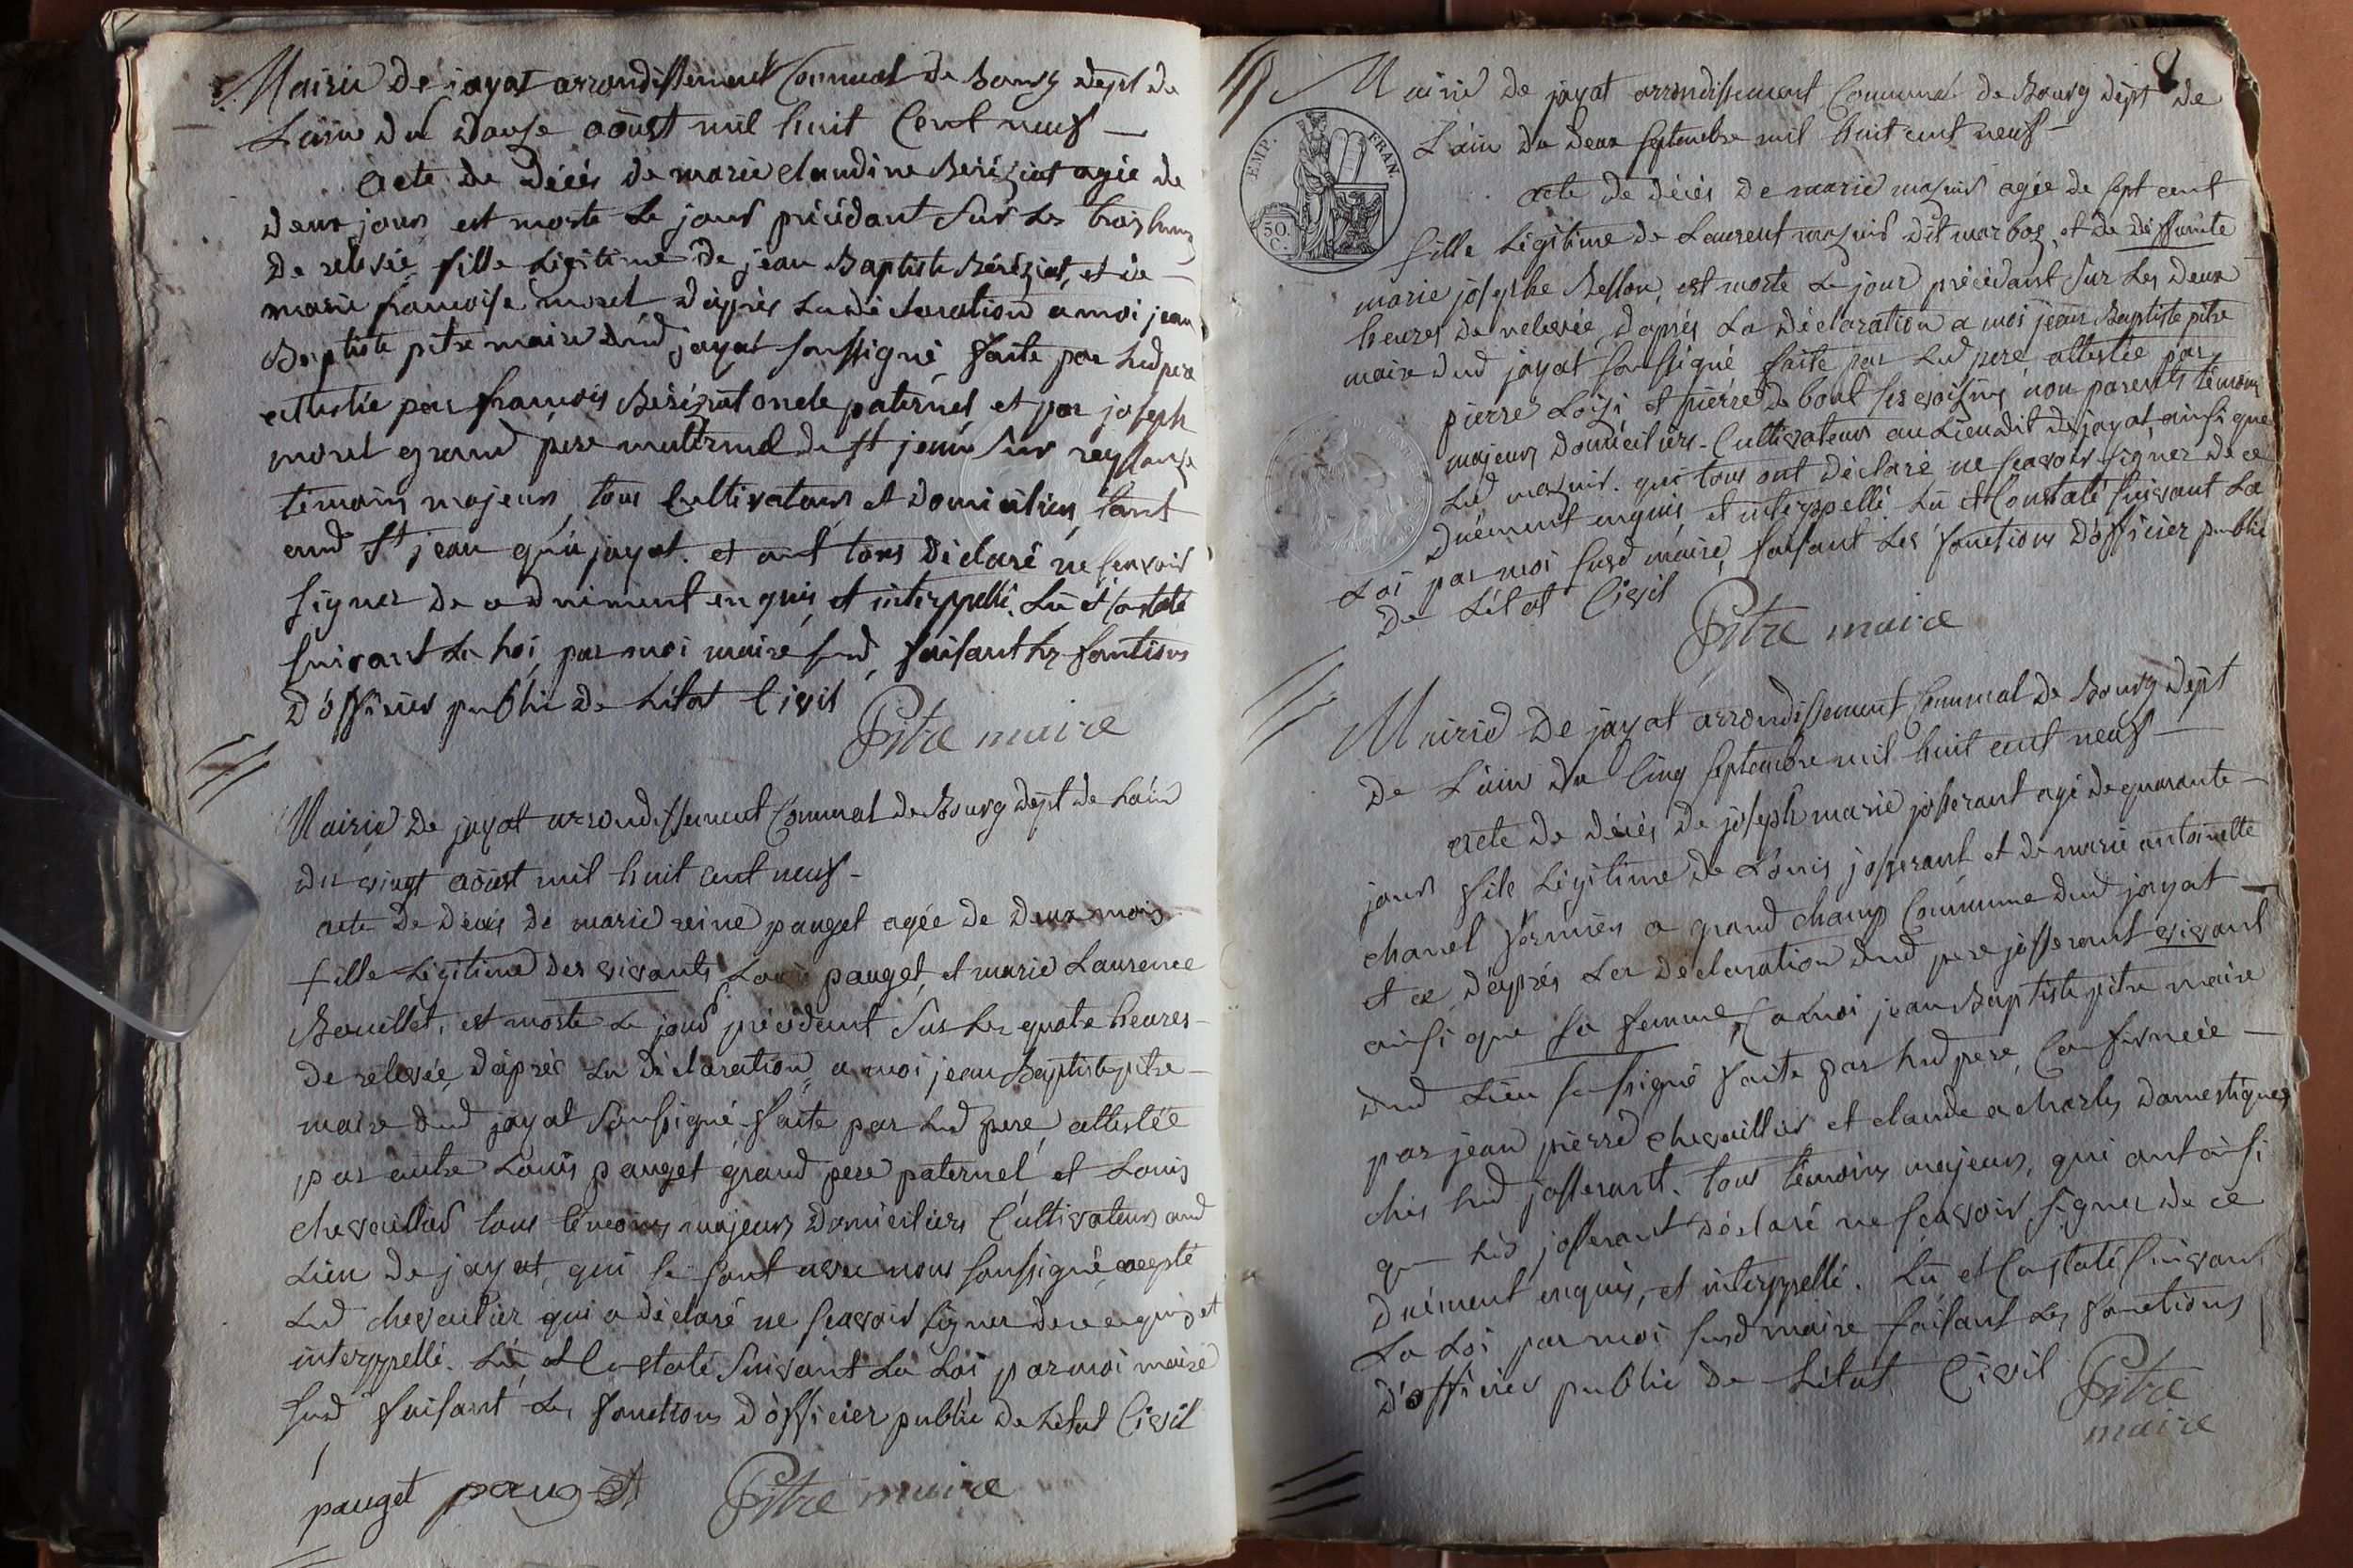 Mairie de jayat arrondissement Communal de Bourg dépt de
L'ain du douse aoûst mil huit Cent neuf —
acte de décés de marie claudine Béréziat agée de
deux jours est morte Le jour précédant sur Les trois heures
de relevée, fille Légitime de jean Baptiste Béréziat, et de —
marie francoise morel, d'aprés La déclaration a moi jean
Baptiste pitre maire dud jayat soussigné, faite par Led pere
attestée par francois Béréziat oncle paternel et par joseph
morel grand pere maternel de st jean sur reyssouze
témoins majeurs, tous Cultivateurs et domiciliés, tant
aud st jean qu'a jayat. et ont tous déclaré ne scavoir
signer de ce duement enquis, et interppellé. Lu et Constaté
suivant La Loi, par moi maire susd, faisant Les fonctions
d'officier public de L'état Civil
Pitre maire
Mairie de jayat arrondissement Communal de Bourg dépt de L'ain
du vingt aoûst mil huit cent neuf —
acte de décés de marie reine pauget agée de deux mois
fille Légitime des vivants Louis pauget, et marie Laurence
Bouillet, est morte Le jour précédent sur Les quatre heures —
de relevée, d'aprés La déclaration, a moi jean Baptiste pitre —
maire dud jayat soussigné faite par Led pere, attestée
par autre Louis pauget grand pere paternel et Louis
chevaillier tous témoins majeurs domiciliés Cultivateurs aud
Lieu de jayat, qui se sont avec nous soussigné, excepté
Led chevaillier qui a déclaré ne scavoir signer de ce enquis et
interppellé. Lu et Constaté suivant La Loi par moi maire
susd faisant Les fonctions d'officier public de L'état Civil
pauget pauget Pitre maire
8
Mairie de jayat arrondissement Communal de Bourg dépt de
L'ain du deux septembre mil huit cent neuf —
EMP. FRAN.
50. C.
acte de décés de marie mazuir agée de sept ans
fille Légitime de Laurent mazuir dit marboz, et de déffunte
marie josephe Bellon, est morte Le jour précédant sur Les deux
heures de relevée, d'aprés La déclaration a moi jean Baptiste pitre
maire dud jayat soussigné faite par Led pere, attestée par
pierre Loisi, et pierre debout ses voisins non parents témoins
majeurs domiciliés Cultivateurs au Lieu dit de jayat, ainsi que
Led mazuir. qui tous ont déclaré ne scavoir signer de ce
duement enquis, et interppellé Lu et Constaté suivant La
Loi par moi susd maire, faisant Les fonctions d'officier public
de L'état Civil
Pitre maire
Mairie de jayat arrondissement Communal de Bourg dépt
de L'ain du Cinq septembre mil huit cent neuf —
acte de décés de joseph marie josserant agé de quarante —
jours fils Légitime de Louis josserant, et de marie antoinette
chanel fermiers a grand champ Commune dud jayat —
et ce, d'aprés Les déclaration dud pere josserant vivant
ainsi que sa femme, a moi jean Baptiste pitre maire
dud Lieu soussigné faite par Led pere, Confirmée —
par jean pierre chevaillier et claude acharly domestiques
chés Led josserant. tous témoins majeurs, qui ont ainsi
que Led josserant déclaré ne scavoir signer de ce
duement enquis, et interppellé. Lu et Constaté suivant
La Loi par moi susd maire faisant Les fonctions
d'officier public de L'état Civil
Pitre
maire